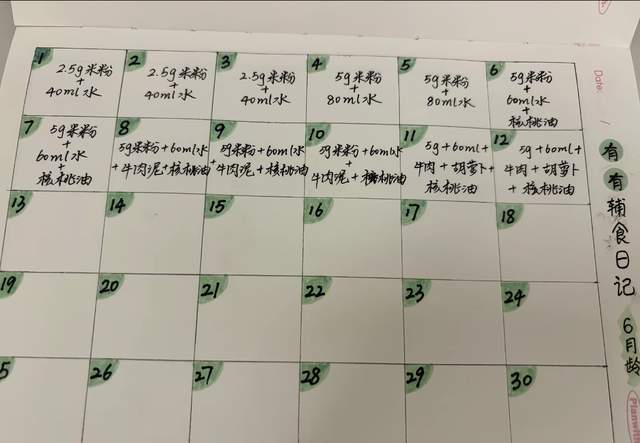 Date: /
1
2.5g米粉
+
40ml水
2
2.5g米粉
+
40ml水
3
2.5g米粉
+
40ml水
4
5g米粉
+
80ml水
5
5g米粉
+
80ml水
6
5g米粉
+
60ml水
+
核桃油
7
5g米粉
+
60ml水
+
核桃油
8
5g米粉+60ml水
+牛肉泥+核桃油
9
5g米粉+60ml水
+牛肉泥+核桃油
10
5g米粉+60ml水
+
牛肉泥+核桃油
11
5g+60ml+
牛肉+胡萝卜+
核桃油
12
5g+60ml+
牛肉+胡萝卜
+核桃油
13
14
15
16
17
18
19
20
21
22
23
24
5
26
27
28
29
30
有有辅食日记
6月龄